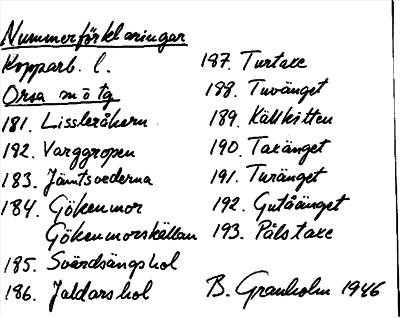 Nummerförklaringar
Kopparb. l.
Orsa sn ö tg
181. Lissleråkern
182. Varggropen
183. Jämtsvederna
184. Gökenmor
Gökenmorskällan
185. Svärdsängshol
186. Jaldarshol
187. Turtaxe
188. Tuvänget
189. Källkitten
190. Taxänget
191. Turänget
192. Gutåänget
193. Pålstaxe
B. Granholm 1946